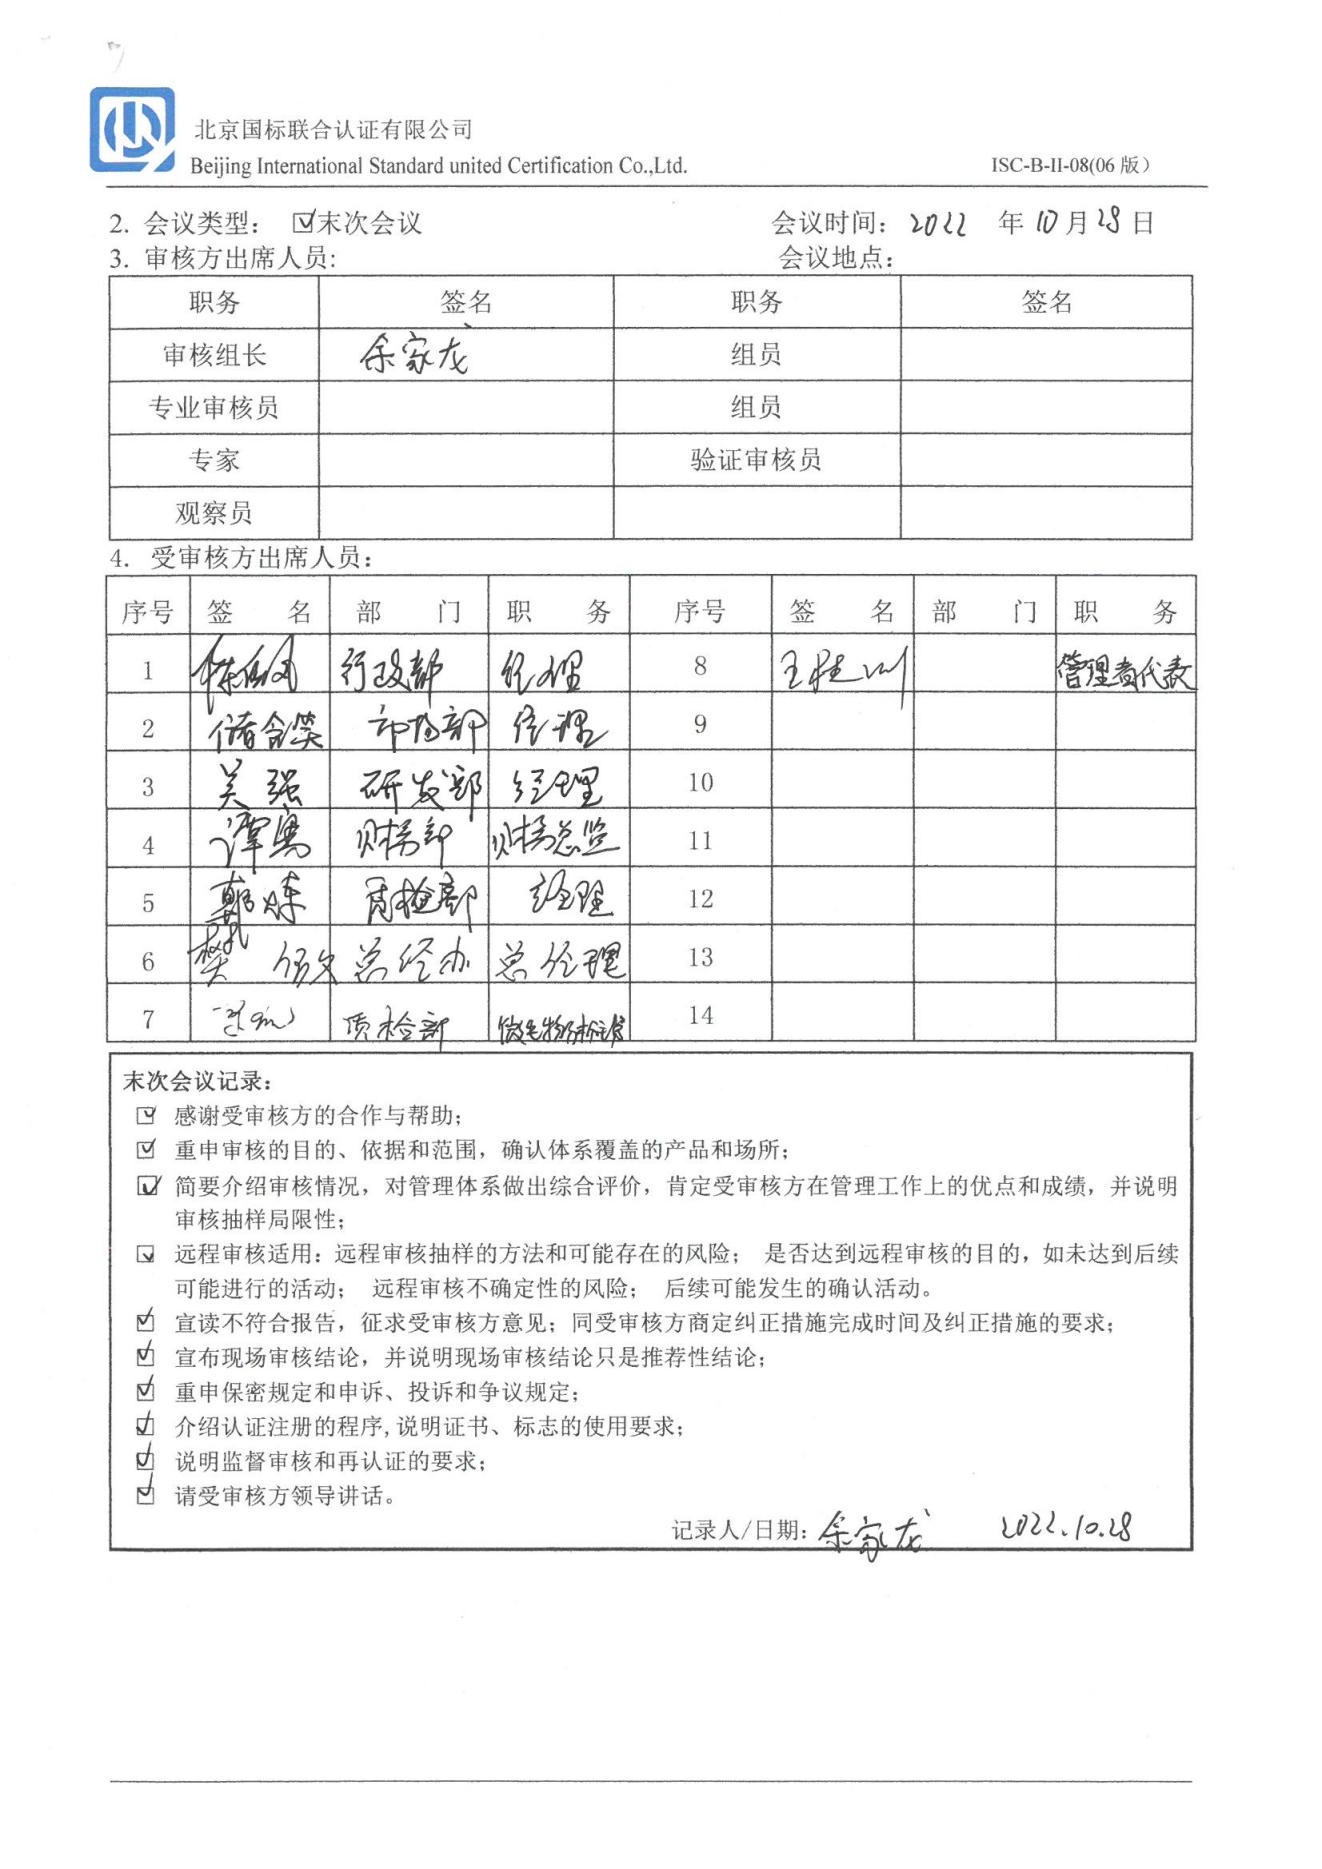 北京国标联合认证有限公司
Beijing International Standard united Certification Co.,Ltd. ISC-B-II-08(06 版)
2. 会议类型: ☑末次会议 会议时间: 2022 年 10 月 28 日
3. 审核方出席人员: 会议地点:
职务 签名 职务 签名
审核组长 余家龙 组员
专业审核员 组员
专家 验证审核员
观察员
4. 受审核方出席人员:
序号 签 名 部 门 职 务 序号 签 名 部 门 职 务
1 行政部 经理 8 管理者代表
2 经理 9
3 吴强 研发部 经理 10
4 财务部 财务总监 11
5 质检部 经理 12
6 樊 总经办 总经理 13
7 质检部 14
末次会议记录:
☑ 感谢受审核方的合作与帮助;
☑ 重申审核的目的、依据和范围, 确认体系覆盖的产品和场所;
☑ 简要介绍审核情况, 对管理体系做出综合评价, 肯定受审核方在管理工作上的优点和成绩, 并说明
审核抽样局限性;
☑ 远程审核适用: 远程审核抽样的方法和可能存在的风险; 是否达到远程审核的目的, 如未达到后续
可能进行的活动; 远程审核不确定性的风险; 后续可能发生的确认活动。
☑ 宣读不符合报告, 征求受审核方意见; 同受审核方商定纠正措施完成时间及纠正措施的要求;
☑ 宣布现场审核结论, 并说明现场审核结论只是推荐性结论;
☑ 重申保密规定和申诉、投诉和争议规定;
☑ 介绍认证注册的程序, 说明证书、标志的使用要求;
☑ 说明监督审核和再认证的要求;
☑ 请受审核方领导讲话。
记录人/日期: 余家龙 2022.10.28